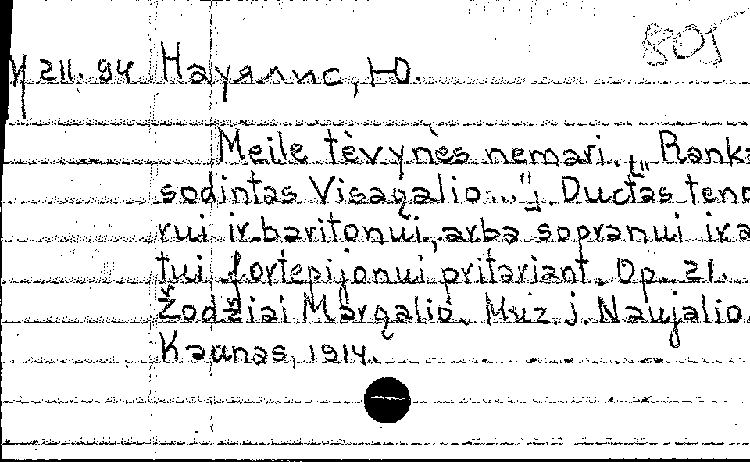 805
У 211. 94 Науялис, Ю.
Meile tėvynės nemari. [„Ranka
sodintas Visagalio..."]. Ductas teno
rui ir baritonui, arba sopranui ir a
tui fortepijonui pritariant. Op. 21.
Žodžiai Margalio. Muz. J. Naujalio.
Kaunas, 1914.